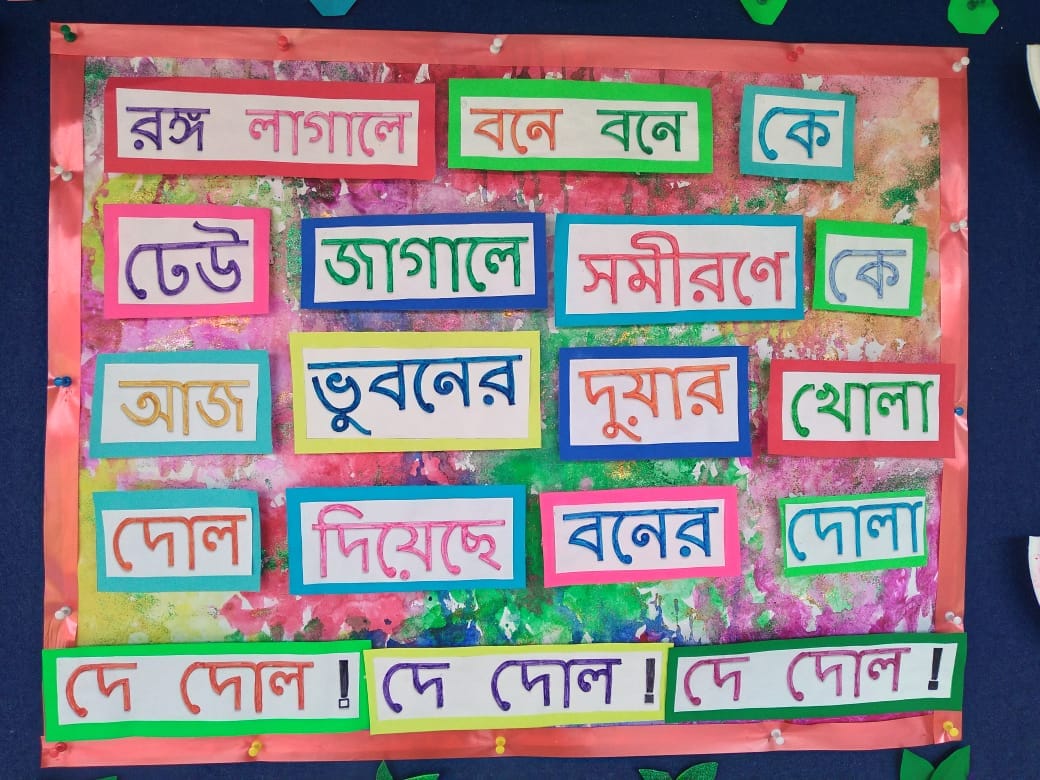 রঙ্গ লাগালে বনে বনে কে
ঢেউ জাগালে সমীরণে কে
আজ ভুবনের দুয়ার খোলা
দোল দিয়েছে বনের দোলা
দে দোল! দে দোল! দে দোল!